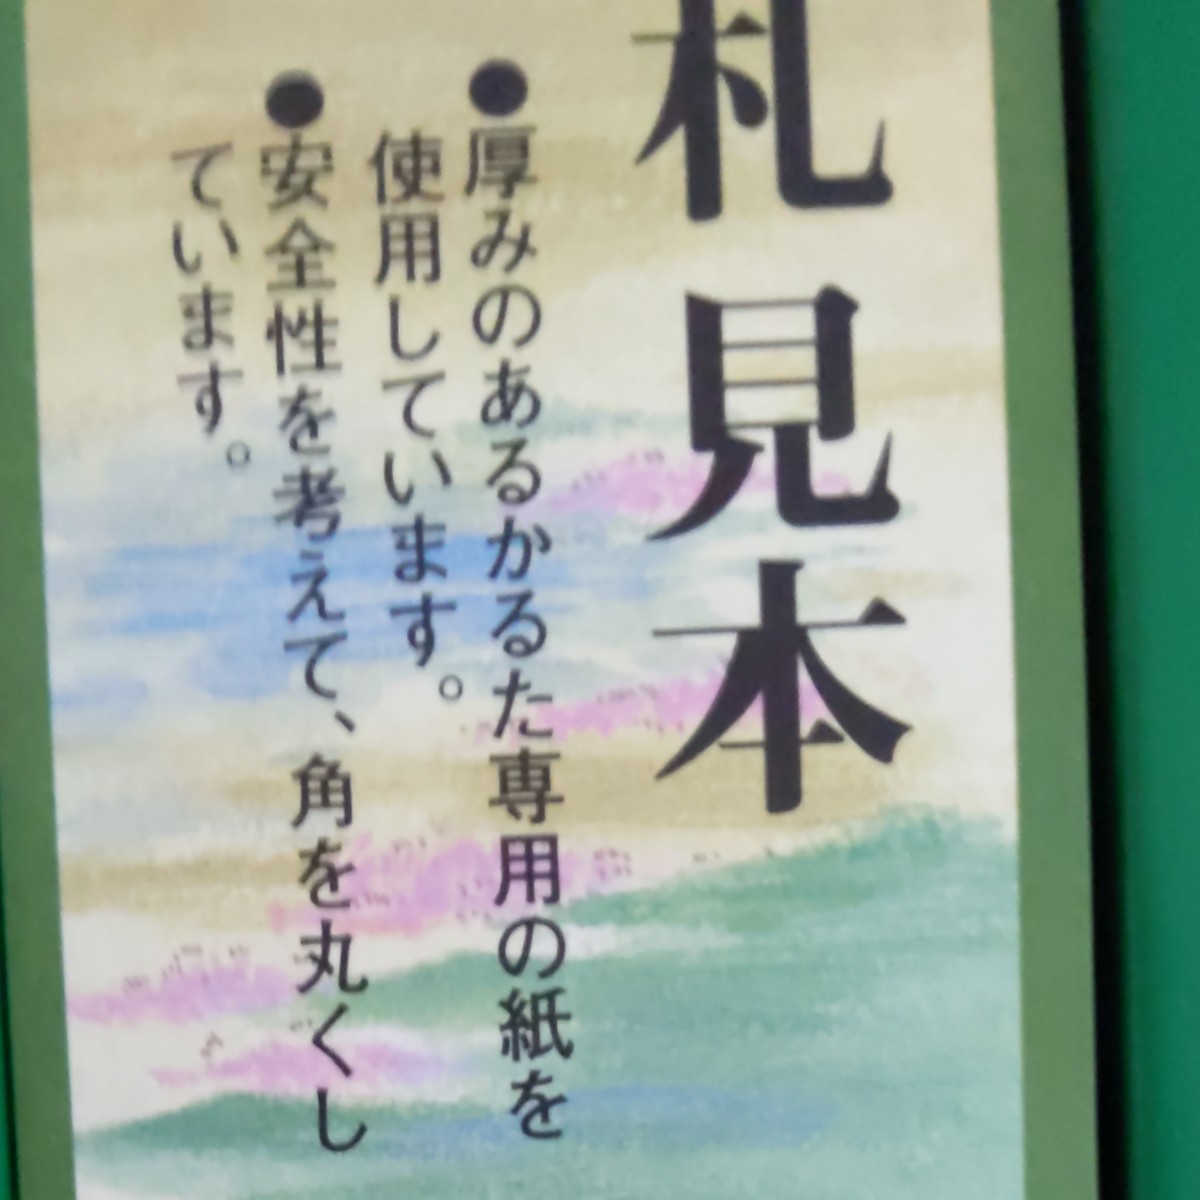 札見本
●厚みのあるかるた専用の紙を
使用しています。
●安全性を考えて、角を丸くし
ています。